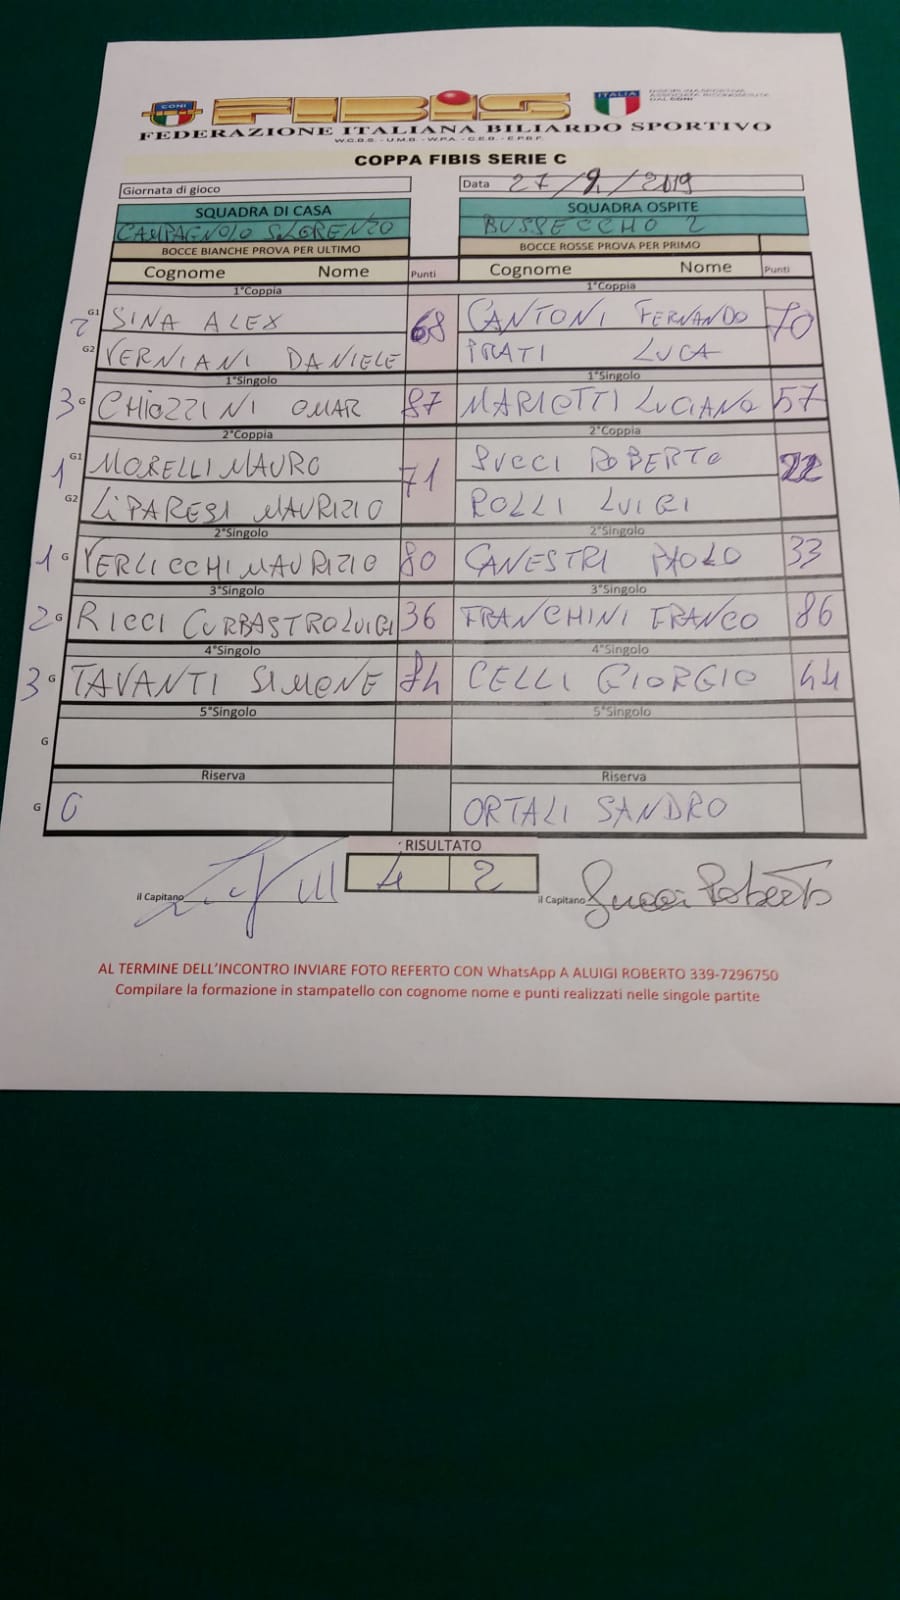 CONI
FIBIS
ITALIA
DISCIPLINA SPORTIVA
ASSOCIATA RICONOSCIUTA
DAL CONI
FEDERAZIONE ITALIANA BILIARDO SPORTIVO
COPPA FIBIS SERIE C
Giornata di gioco
Data 27/9/2019
SQUADRA DI CASA SQUADRA OSPITE
CAMPAGNOLO S.LORENZO BUSSECCHO 2
BOCCE BIANCHE PROVA PER ULTIMO BOCCE ROSSE PROVA PER PRIMO
Cognome Nome Punti Cognome Nome Punti
1°Coppia 1°Coppia
2 G1 SINA ALEX 68 CANTONI FERNANDO 70
G2 VERNIANI DANIELE PRATI LUCA
1°Singolo 1°Singolo
3 G CHIOZZINI OMAR 87 MARIOTTI LUCIANO 57
2°Coppia 2°Coppia
1 G1 MORELLI MAURO 71 SUCCI ROBERTO 22
G2 LIPARESI MAURIZIO ROLLI LUIGI
2°Singolo 2°Singolo
1 G VERLICCHI MAURIZIO 80 CANESTRI PAOLO 33
3°Singolo 3°Singolo
2 G RICCI CURBASTRO LUIGI 36 FRANCHINI FRANCO 86
4°Singolo 4°Singolo
3 G TAVANTI SIMONE 84 CELLI GIORGIO 44
5°Singolo 5°Singolo
G
Riserva Riserva
G ORTALI SANDRO
RISULTATO
4 2
il Capitano il Capitano Succi Roberto
AL TERMINE DELL'INCONTRO INVIARE FOTO REFERTO CON WhatsApp A ALUIGI ROBERTO 339-7296750
Compilare la formazione in stampatello con cognome nome e punti realizzati nelle singole partite